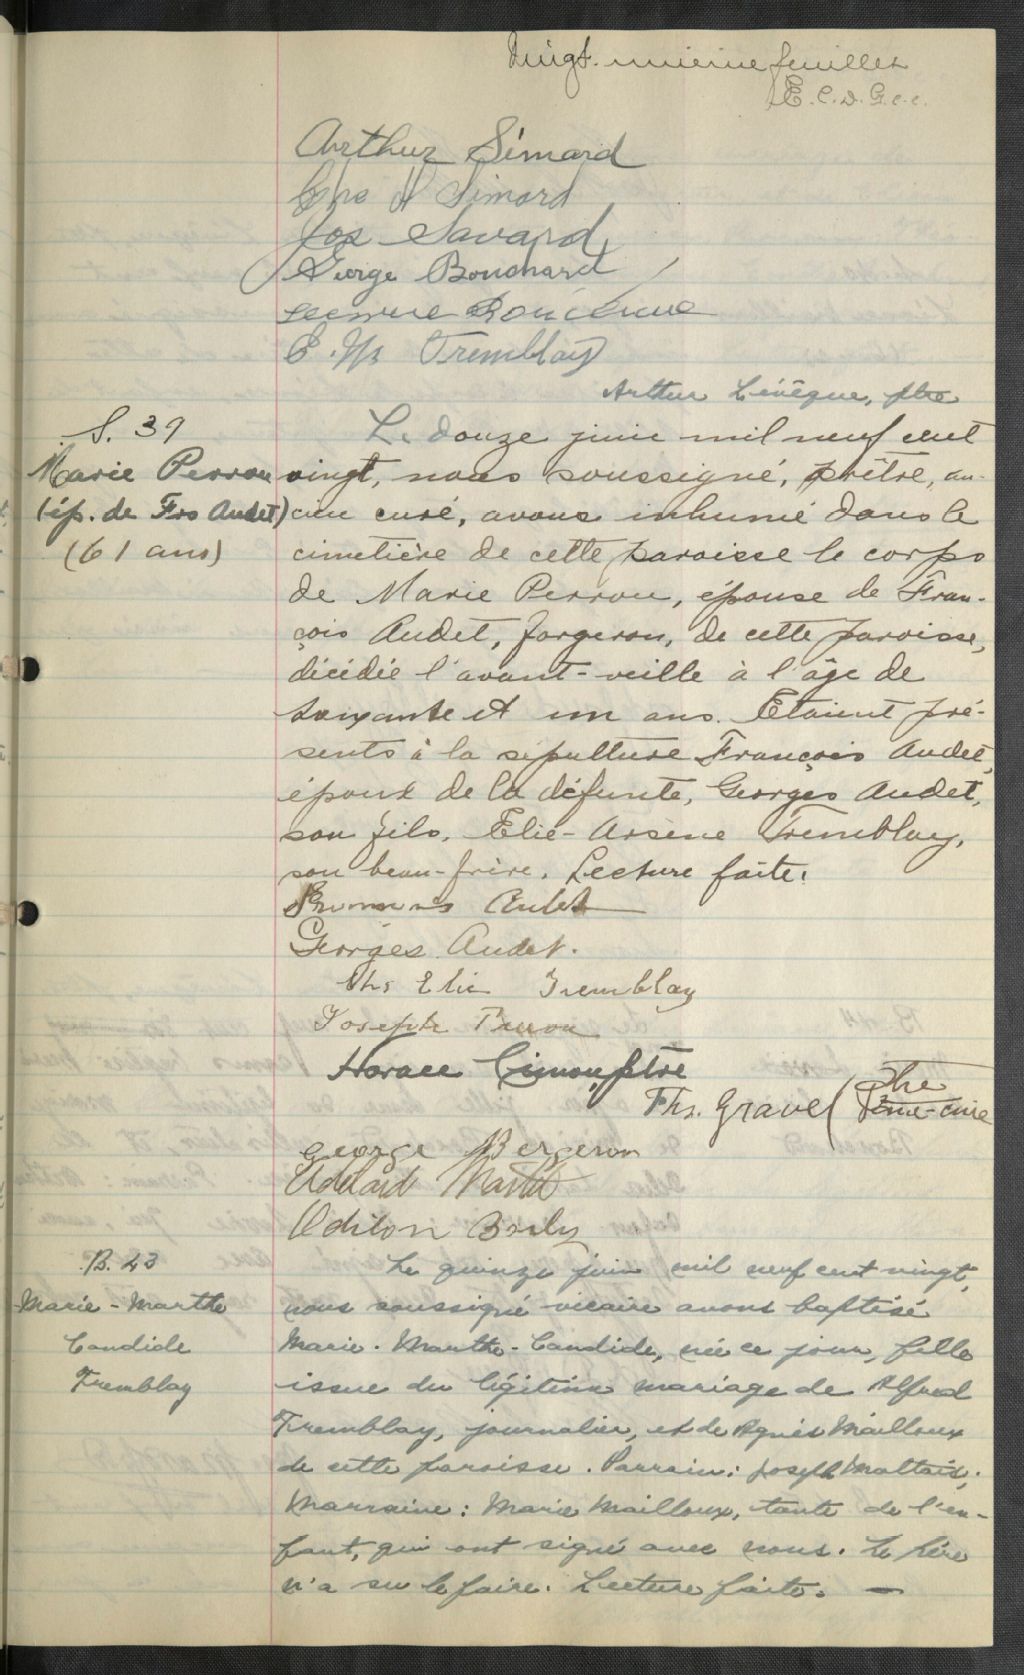 Vingt-unième feuillet
E. C. D. G. c. c.
Arthur Simard
Chs H Simard
Jos Savard
George Bouchard
E. M. Tremblay
Arthur Lévêque, ptre
S. 39
Marie Perron
(ép. de Frs Audet)
(61 ans)
Le douze juin mil neuf cent
vingt, nous soussigné, prêtre, an-
cien curé, avons inhumé dans le
cimetière de cette paroisse le corps
de Marie Perron, épouse de Fran-
çois Audet, forgeron, de cette paroisse,
décédée l'avant-veille à l'âge de
soixante et un ans. Etaient pré-
sents à la sépulture François Audet,
époux de la défunte, Georges Audet,
son fils, Elie-Arsène Tremblay,
son beau-frère. Lecture faite.
Audet
Georges Audet.
Ths Elie Tremblay
Joseph Perron
Horace Cimon, ptre
Ths. Gravel ptre
George Bergeron
Adélard
Odilon Boily
B. 43
Marie-Marthe
Candide
Tremblay
Le quinze juin mil neuf cent vingt,
nous soussigné vicaire avons baptisé
Marie-Marthe-Candide, née ce jour, fille
issue du légitime mariage de Alfred
Tremblay, journalier, et de Agnès Mailloux
de cette paroisse. Parrain: Joseph Maltais;
Marraine: Marie Mailloux, tante de l'en-
fant, qui ont signé avec nous. Le père
n'a su le faire. Lecture faite. —